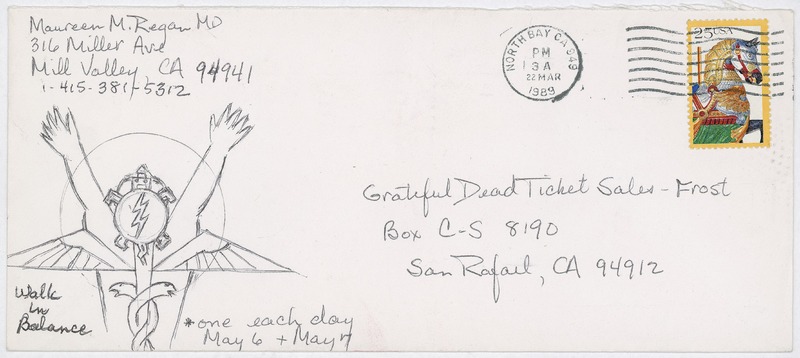 Maureen M. Regan MD
316 Miller Ave
Mill Valley, CA 94941
1-415-381-5312
NORTH BAY CA 949
PM
22 MAR
1989
25 USA
Grateful Dead Ticket Sales - Frost
Box C-S 8190
San Rafael, CA 94912
Walk
in
Balance
*one each day
May 6 + May 7